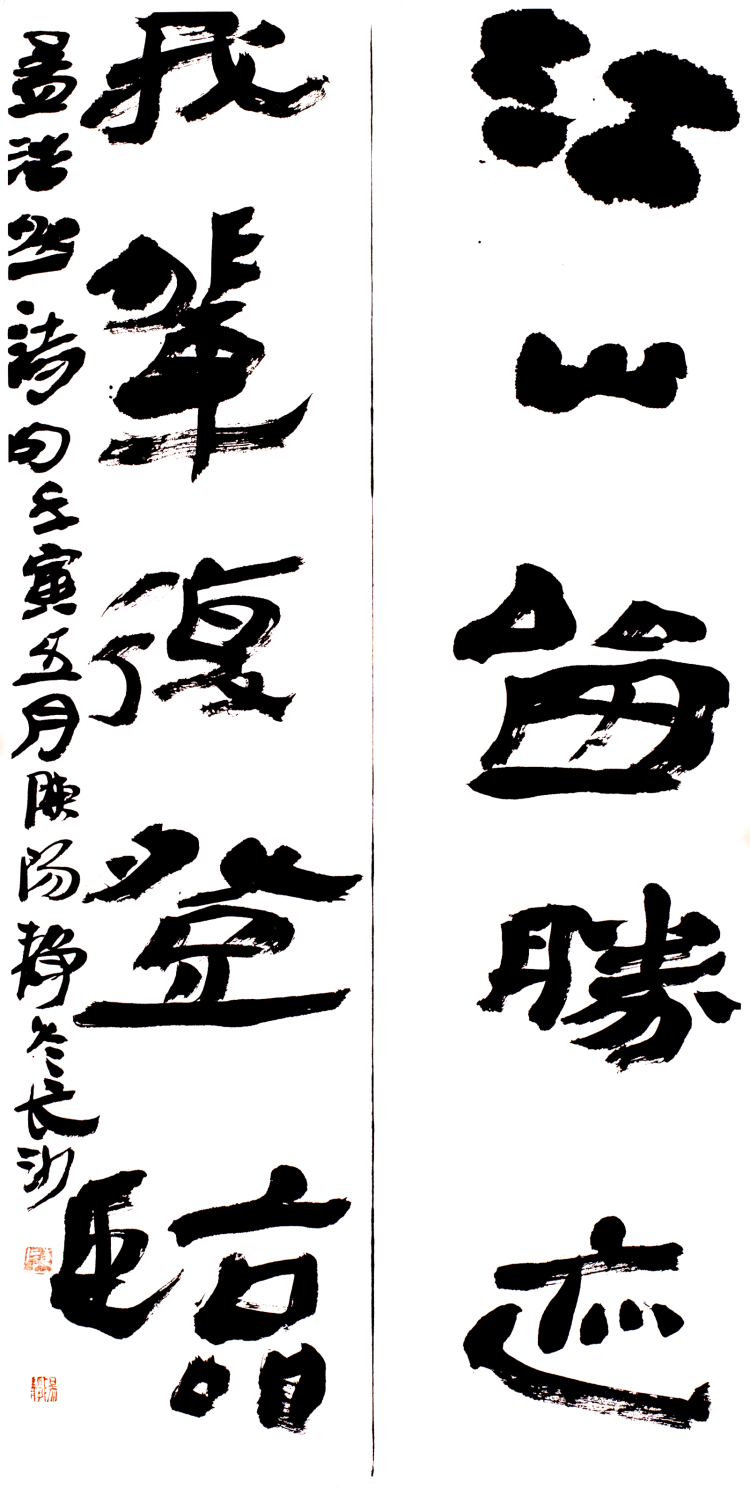 江山留勝迹
我輩復登臨
孟浩然詩句壬寅五月歐陽静於长沙